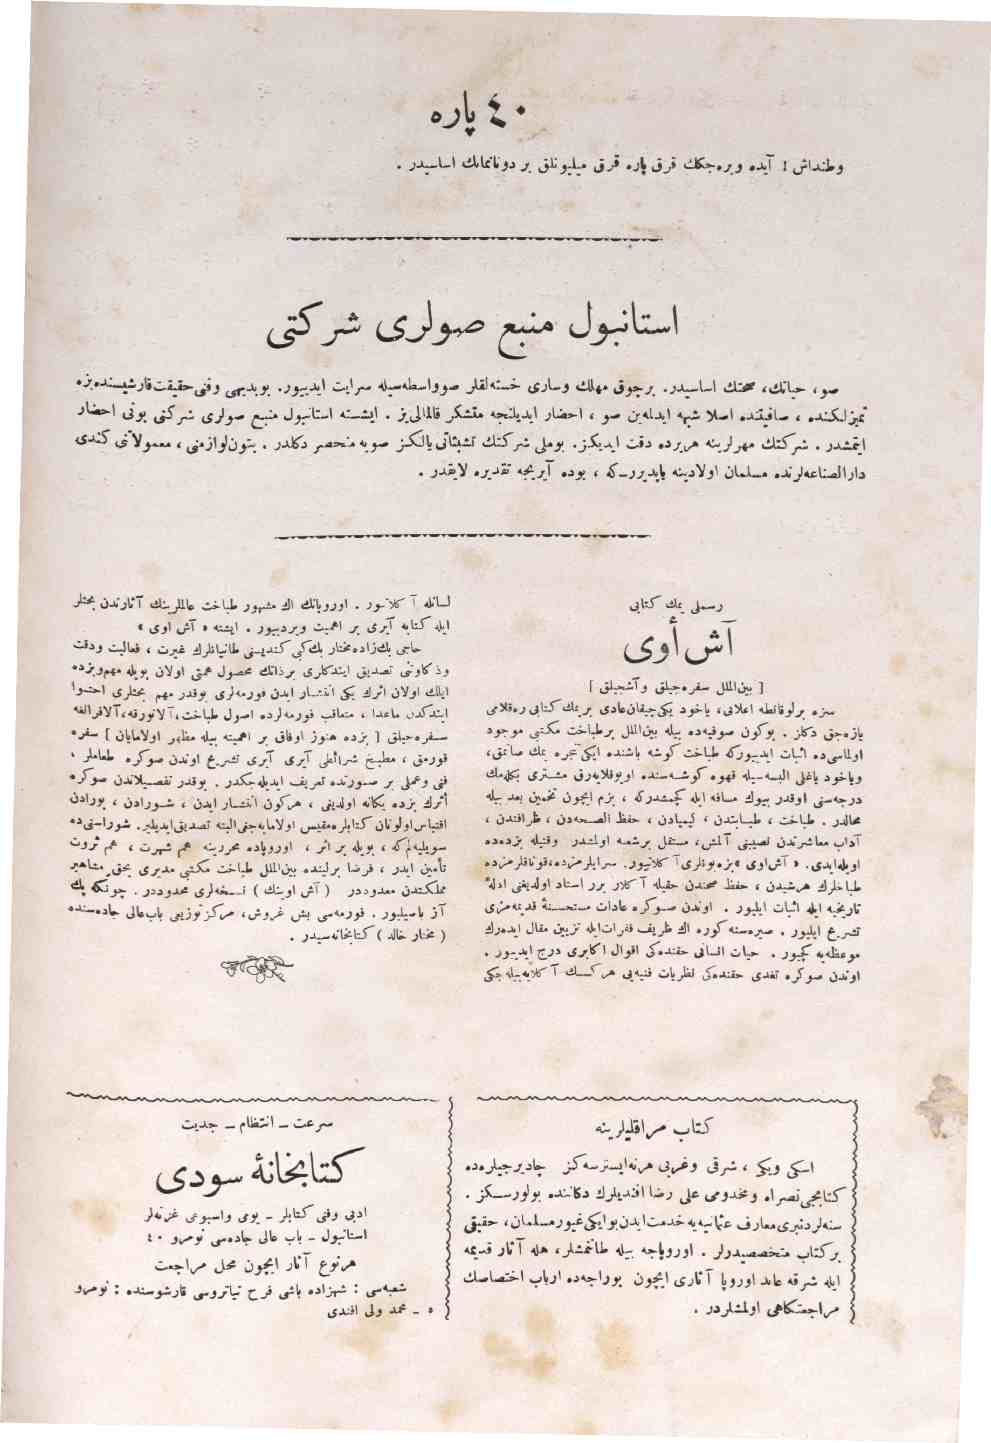 ٤٠ پاره
وطنداش ! آیده ویره‌جكك قرق پاره قرق میلیونلق بر دونانمانك اساسیدر .
استانبول منبع صولری شركتی
صو ، حیاتك ، صحتك اساسیدر . برچوق مهلك وساری خسته‌لقلر صوواسطه‌سیله سرایت ایدییور. بوبدیهی وفنی حقیقت قارشیسنده بزه
تمیزلكنده ، صافیتنده اصلا شبهه ایدلمه‌ین صو ، احضار ایدیلنجه متشكر قالمالی‌یز . ایشته استانبول منبع صولری شركتی بونی احضار
ایتمشدر . شركتك مهرلرینه هریرده دقت ایدیكز. بوملی شركتك تشبثاتی یالكز صویه منحصر دكلدر . بتون لوازمنی ، معمولاتنی كندی
دارالصناعه‌لرنده مسلمان اولادینه یاپدیررـ كه ، بوده آیریجه تقدیره لایقدر .
رسملی یمك كتابی
آش أوی
[ بین‌الملل سفره‌جیلق و آشجیلق ]
سزه برلوقانطه اعلانی، یاخود یكی چیقان عادی بریمك كتابی ره‌قلامی
یازه‌جق دكلز . بوكون صوفیه‌ده بیله بین‌الملل برطباخت مكتبی موجود
اولماسی‌ده اثبات ایدییوركه طباخت كوشه باشنده ایكی تجره یمك صاتمق،
ویاخود یاغلی البسه‌سیله قهوه كوشه‌سنده اویوقلایه‌رق مشتری بكله‌مك
درجه‌سنی اوقدر بیوك مسافه ایله كچمشدركه ، بزم ایچون تخمین بعد بیله
محالدر. طباخت ، طبابتدن ، كیمیادن ، حفظ الصحه‌دن ، ظرافتدن ،
آداب معاشرتدن نصیبنی آلمش، مستقل برشعبه اولمشدر وقتیله بزده‌ده
اویله‌ایدی. « آش اوی »بزه بونلری آ كلاتیور. سرایلرمزده، قوناقلرمزده
طباخلرك هرشیدن ، حفظ صحتدن حقیله آ كلار برر استاد اولدیغنی ادلهٔ
تاریخیه ایله اثبات ایلیور . اوندن صوكره عادات مستحسنهٔ قدیمه‌مزی
تشریح ایلیور . صیره‌سنه كوره اك ظریف فقرات‌ایله تزیین مقال ایده‌رك
موعظه‌یه كچیور . حیات انسانی حقنده‌كی اقوال اكابری درج ایدییور .
اوندن صوكره تغدی حقنده‌كی نظریات فنیه‌یی هركسك آ كلایه‌بیله‌جكی
لسانله آ كلاتیور . اوروپانك اك مشهور طباخت عالملرینك آثارندن بحثلر
ایله كتابه آیری بر اهمیت ویردییور . ایشته « آش اوی »
حاجی بك‌زاده مختار بك كبی كندیسنی طانیانلرك غیرت ، فعالیت ودقت
وذكاوتنی تصدیق ایتدكلری برذاتك محصول همتی اولان بویله مهم وبزده
ایلك اولان اثرك یكی انتشار ایدن فورمه‌لری بوقدر مهم بحثلری احتوا
ایتدكدن ماعدا ، متعاقب فورمه‌لرده اصول طباخت، آلاتورقه، آلافرانغه
سفره‌جیلق [ بزده هنوز اوفاق بر اهمیته بیله مظهر اولامایان ] سفره
قورمق ، مطبخ شرائطی آیری آیری تشریح اوندن صوكره طعاملر ،
فنی وعملی بر صورتده تعریف ایدیله‌جكدر . بوقدر تفصیلاتدن صوكره
أثرك بزده یكانه اولدیغنی ، هركون انتشار ایدن ، شورادن ، بورادن
اقتباس اولونان كتابلره مقیس اولامایه‌جغی البته تصدیق ایدیلیر. شوراسنی‌ده
سویلیه‌لم‌كه ، بویله بر اثر ، اوروپاده محررینه هم شهرت ، هم ثروت
تأمین ایدر ، فرضا برلینده بین‌الملل طباخت مكتبی مدیری بحق مشاهیر
مملكتدن معدوددر ( آش اوینك ) نسخه‌لری محدوددر . چونكه پك
آز باصیلیور. فورمه‌سی بش غروش، مركز توزیعی باب‌عالی جاده‌سنده
( مختار خالد ) كتابخانه‌سیدر .
كتاب مراقلیلرینه
اسكی ویكی ، شرقی وغربی هرنه‌ایسترسه‌كز چادیرجیلرده
كتابجی نصراه ومخدومی علی رضا افندیلرك دكاننده بولورسكز .
سنه‌لردنبری معارف عثمانیه‌یه خدمت ایدن بوایكی غیور مسلمان، حقیقی
بر كتاب متخصصیدرلر. اوروپاجه بیله طانمشلر، هله آثار قدیمه
ایله شرقه عائد اوروپا آثاری ایچون بوراجه‌ده ارباب اختصاصك
مراجعتكاهی اولمشلردر .
سرعت ـ انتظام ـ جدیت
كتابخانهٔ سودی
ادبی وفنی كتابلر ـ یومی واسبوعی غزته‌لر
استانبول ـ باب عالی جاده‌سی نومرو ٤٠
هرنوع آثار ایچون محل مراجعت
شعبه‌سی : شهزاده باشی فرح تیاتروسی قارشوسنده : نومرو
٥ ـ محمد ولی افندی